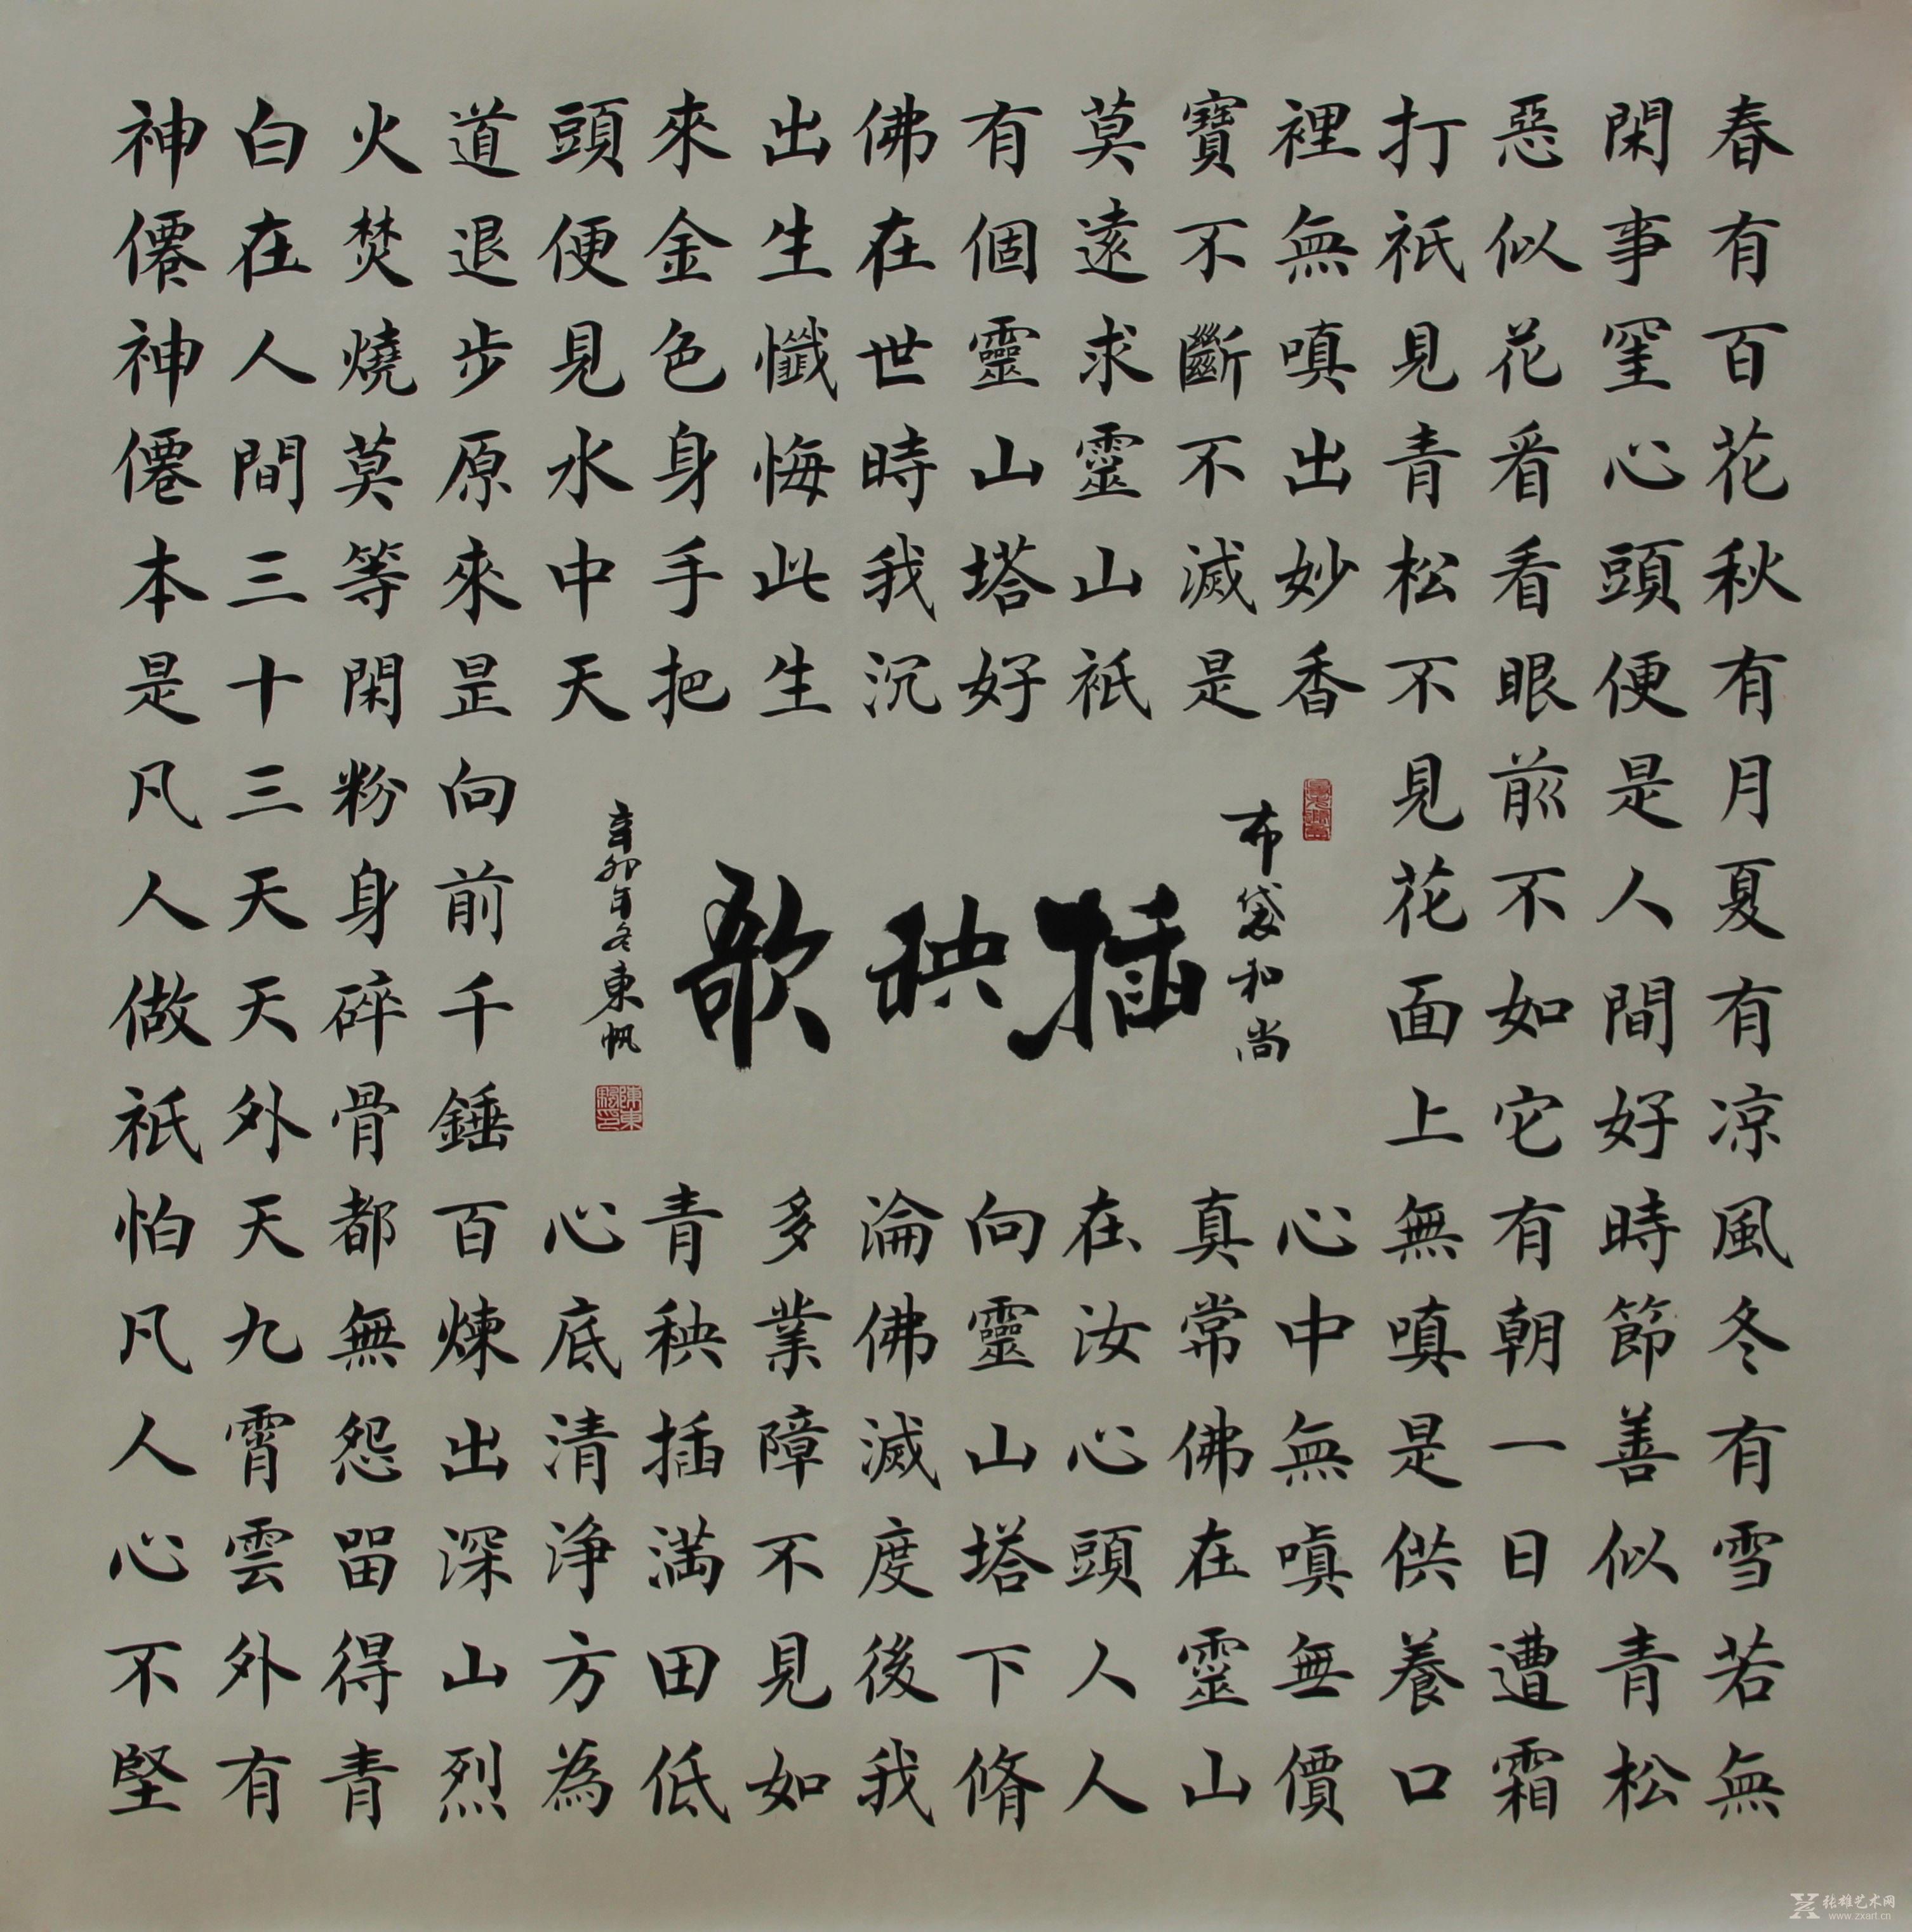 春有百花秋有月夏有凉風冬有雪若無
閑事罣心頭便是人間好時節善似青松
惡似花看看眼前不如它有朝一日遭霜
打祇見青松不見花面上無嗔是供養口
裡無嗔出妙香心中無嗔無價
寶不斷不滅是真常佛在靈山
莫遠求靈山祇在汝心頭人人
有個靈山塔好向靈山塔下脩
佛在世時我沉淪佛滅度後我
出生懺悔此生多業障不見如
來金色身手把青秧插满田低
頭便見水中天心底清淨方為
道退步原來昰向前千錘百煉出深山烈
火焚燒莫等閑粉身碎骨都無怨留得青
白在人間三十三天天外天九霄雲外有
神僊神僊本是凡人做祇怕凡人心不堅
布袋和尚
插秧歌
辛卯年冬東帆
張雄艺术网
www.zxart.cn